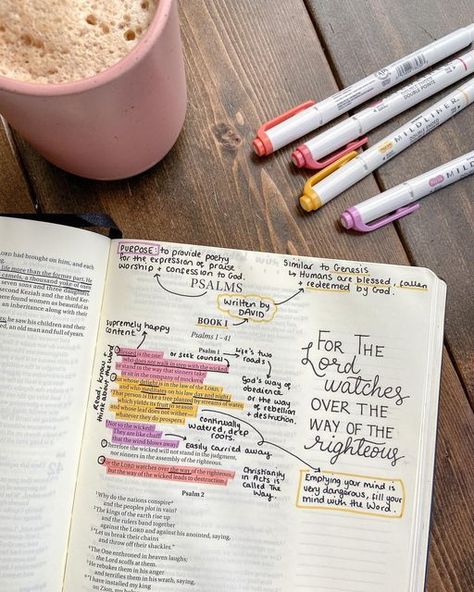 MILDLINER
DOUBLE ENDED
MILDLINER
DOUBLE ENDED
LORD had brought on him, and each
life more than the former part. He
camels, a thousand yoke of oxen
seven sons and three
and the third Ker-
found women as beautiful
an inheritance along with their
he saw his children and their
d, an old man and full of years.
PURPOSE: to provide poetry
for the expression of praise
worship + confession to God.
Similar to Genesis
↳ Humans are blessed, fallen
+ redeemed by God.
PSALMS
written by
DAVID
BOOK I
Psalms 1-41
supremely happy
content
Psalm 1
Life's two
roads
Read, know,
think about the word
Blessed is the one
or seek counsel
who does not walk in step with the wicked
or stand in the way that sinners take
or sit in the company of mockers,
but whose delight is in the law of the LORD,
and who meditates on his law day and night.
That person is like a tree planted by streams of water,
which yields its fruit in season
and whose leaf does not wither—
whatever they do prospers.
God's way of
obedience
or the way
of rebellion
+ destruction.
continually
watered, deep
roots.
Not so the wicked!
They are like chaff
that the wind blows away.
Easily carried away
Therefore the wicked will not stand in the judgment,
nor sinners in the assembly of the righteous.
For the LORD watches over the way of the righteous,
but the way of the wicked leads to destruction.
Christianity
in Acts is
called The
Way.
FOR THE
Lord
WATCHES
OVER THE
WAY OF THE
righteous
Emptying your mind is
very dangerous, fill your
mind with the Word.
Psalm 2
Why do the nations conspire
and the peoples plot in vain?
The kings of the earth rise up
and the rulers band together
against the LORD and against his anointed, saying,
"Let us break their chains
and throw off their shackles."
The One enthroned in heaven laughs;
the Lord scoffs at them.
He rebukes them in his anger
and terrifies them in his wrath, saying,
"I have installed my king
on Zion, my holy